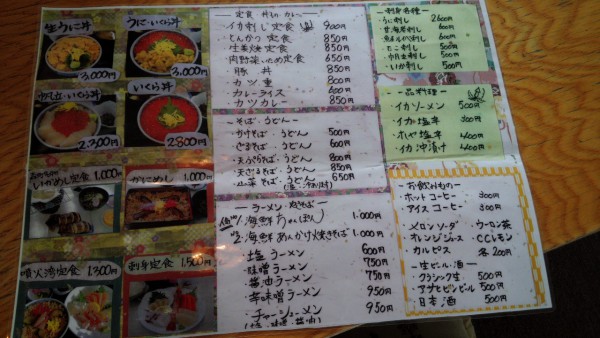 生うに丼
3,000円
うに・いくら丼
3,000円
帆立・いくら丼
2,300円
いくら丼
2800円
いかめし定食 1,000円
かにめし 1,000円
噴火湾定食 1,300円
刺身定食 1,500円
定食 丼もの カレー
イカ刺し定食 900円
とんかつ定食 850円
生姜焼定食 850円
肉野菜いため定食 650円
豚丼 850円
カツ重 800円
カレーライス 400円
カツカレー 850円
そば・うどん
かけそば・うどん 500円
ざるそば・うどん 600円
天ぷらそば・うどん 800円
天ざるそば・うどん 850円
山菜そば・うどん 650円
ラーメン・焼そば
海鮮ちゃんぽん 1,000円
海鮮あんかけ焼きそば 1,000円
塩ラーメン 600円
味噌ラーメン 750円
醤油ラーメン 750円
辛味噌ラーメン 950円
チャーシューメン 950円
(塩・味噌・醤油)
刺身各種
うに刺し 2600円
甘海老刺し 600円
たこ刺し 500円
帆立刺し 500円
いか刺し 500円
一品料理
イカソーメン 500円
イカ塩辛 300円
ホヤ塩辛 400円
イカ沖漬け 400円
お飲みもの
ホットコーヒー 300円
アイスコーヒー 300円
メロンソーダ ウーロン茶
オレンジジュース CCレモン
カルピス 各200円
生ビール・酒
クラシック生 500円
アサヒビンビール 500円
日本酒 500円